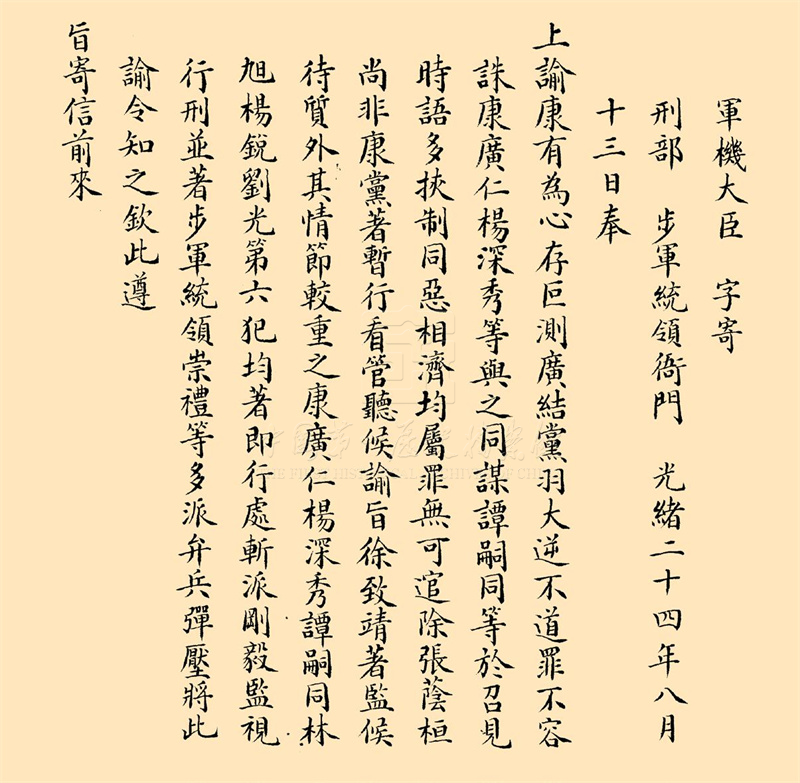 軍機大臣 字寄
刑部 步軍統領衙門 光緒二十四年八月
十三日奉
上諭康有為心存叵測廣結黨羽大逆不道罪不容
誅康廣仁楊深秀等與之同謀譚嗣同等於召見
時語多挾制同惡相濟均屬罪無可逭除張蔭桓
尚非康黨著暫行看管聽候諭旨徐致靖著監候
待質外其情節較重之康廣仁楊深秀譚嗣同林
旭楊銳劉光第六犯均著即行處斬派剛毅監視
行刑並著步軍統領崇禮等多派弁兵彈壓將此
諭令知之欽此遵
旨寄信前來